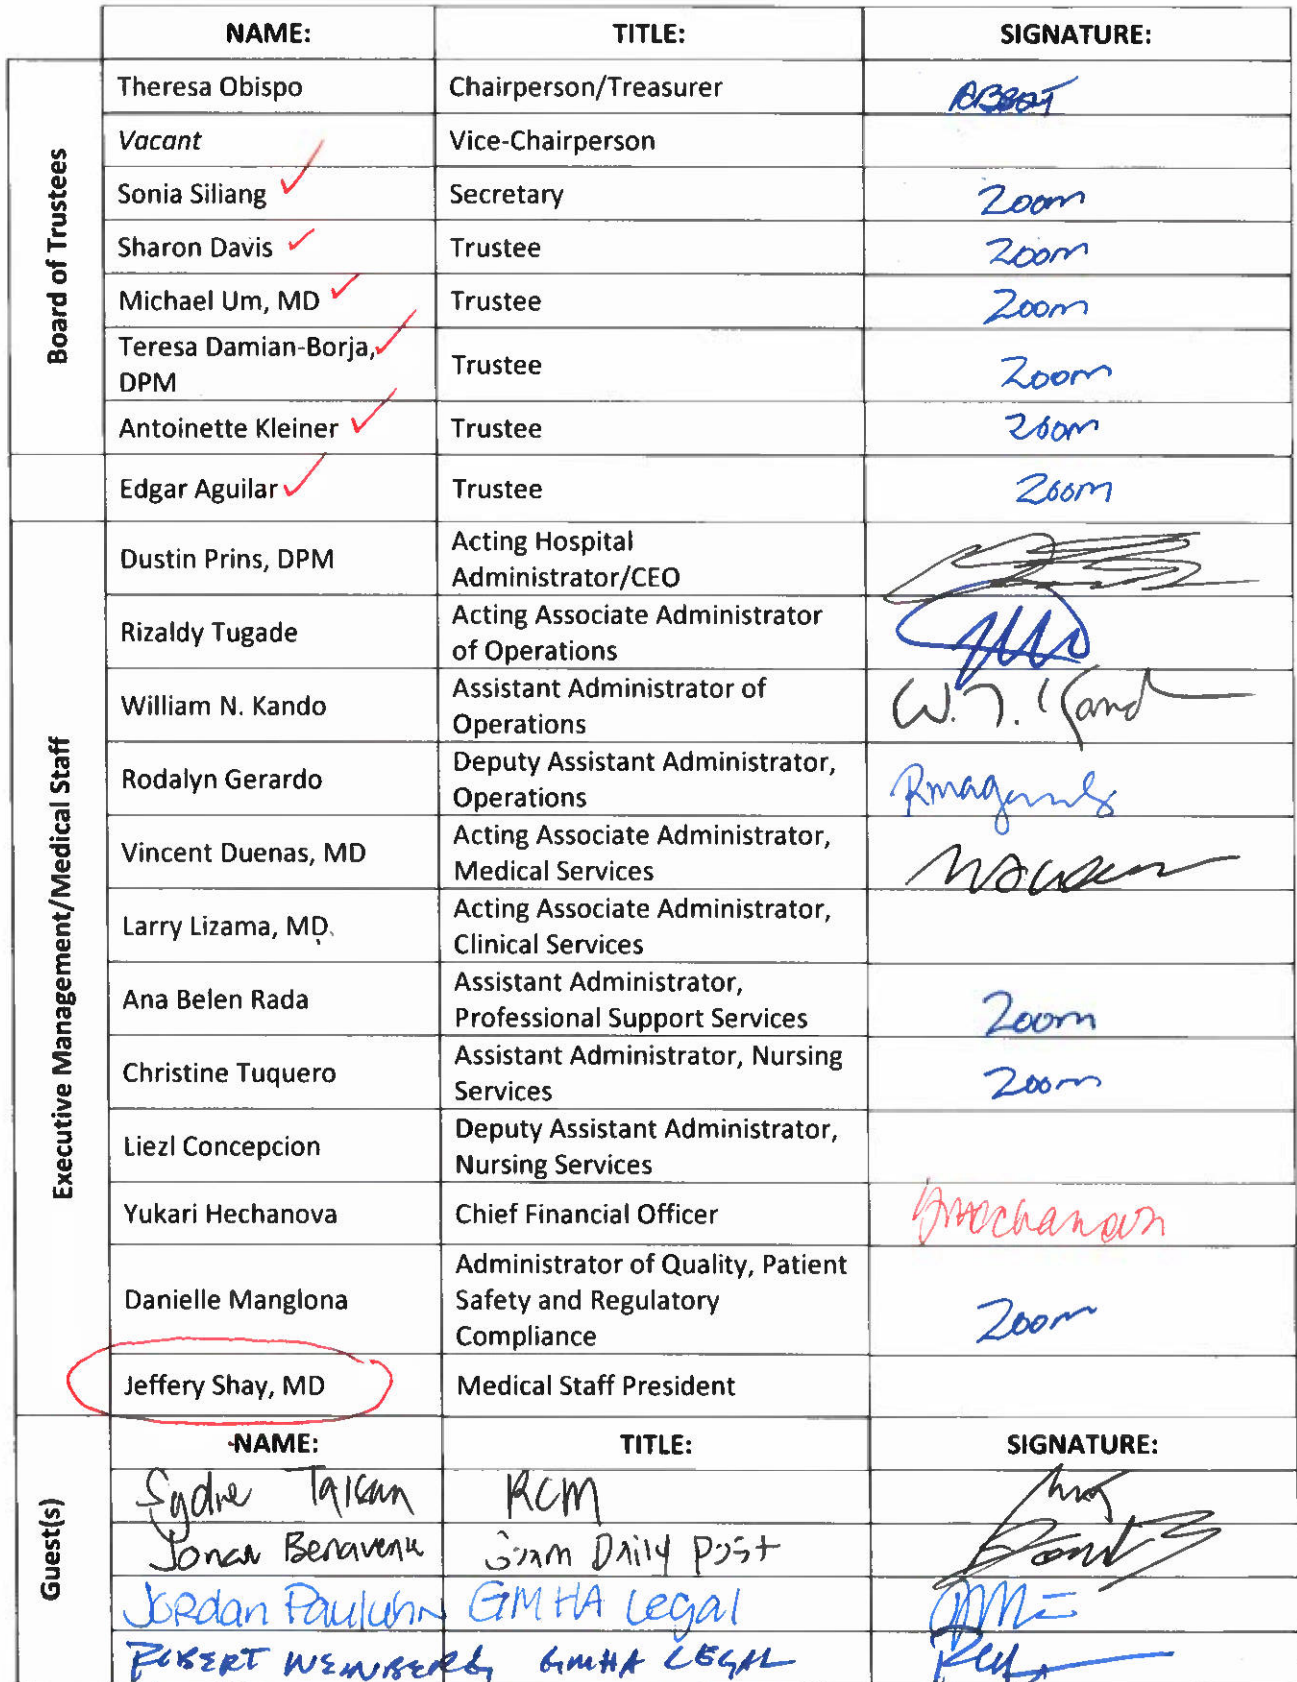 NAME: TITLE: SIGNATURE:
Board of Trustees
Theresa Obispo Chairperson/Treasurer
Vacant Vice-Chairperson
Sonia Siliang Secretary Zoom
Sharon Davis Trustee Zoom
Michael Um, MD Trustee Zoom
Teresa Damian-Borja,
DPM Trustee Zoom
Antoinette Kleiner Trustee Zoom
Edgar Aguilar Trustee Zoom
Executive Management/Medical Staff
Dustin Prins, DPM Acting Hospital
Administrator/CEO
Rizaldy Tugade Acting Associate Administrator
of Operations
William N. Kando Assistant Administrator of
Operations
Rodalyn Gerardo Deputy Assistant Administrator,
Operations
Vincent Duenas, MD Acting Associate Administrator,
Medical Services
Larry Lizama, MD Acting Associate Administrator,
Clinical Services
Ana Belen Rada Assistant Administrator,
Professional Support Services Zoom
Christine Tuquero Assistant Administrator, Nursing
Services Zoom
Liezl Concepcion Deputy Assistant Administrator,
Nursing Services
Yukari Hechanova Chief Financial Officer
Danielle Manglona Administrator of Quality, Patient
Safety and Regulatory
Compliance Zoom
Jeffery Shay, MD Medical Staff President
Guest(s)
NAME: TITLE: SIGNATURE:
RCM
Daily Post
Jordan Pauluhn GMHA Legal
ROBERT WEINBERG GMHA LEGAL